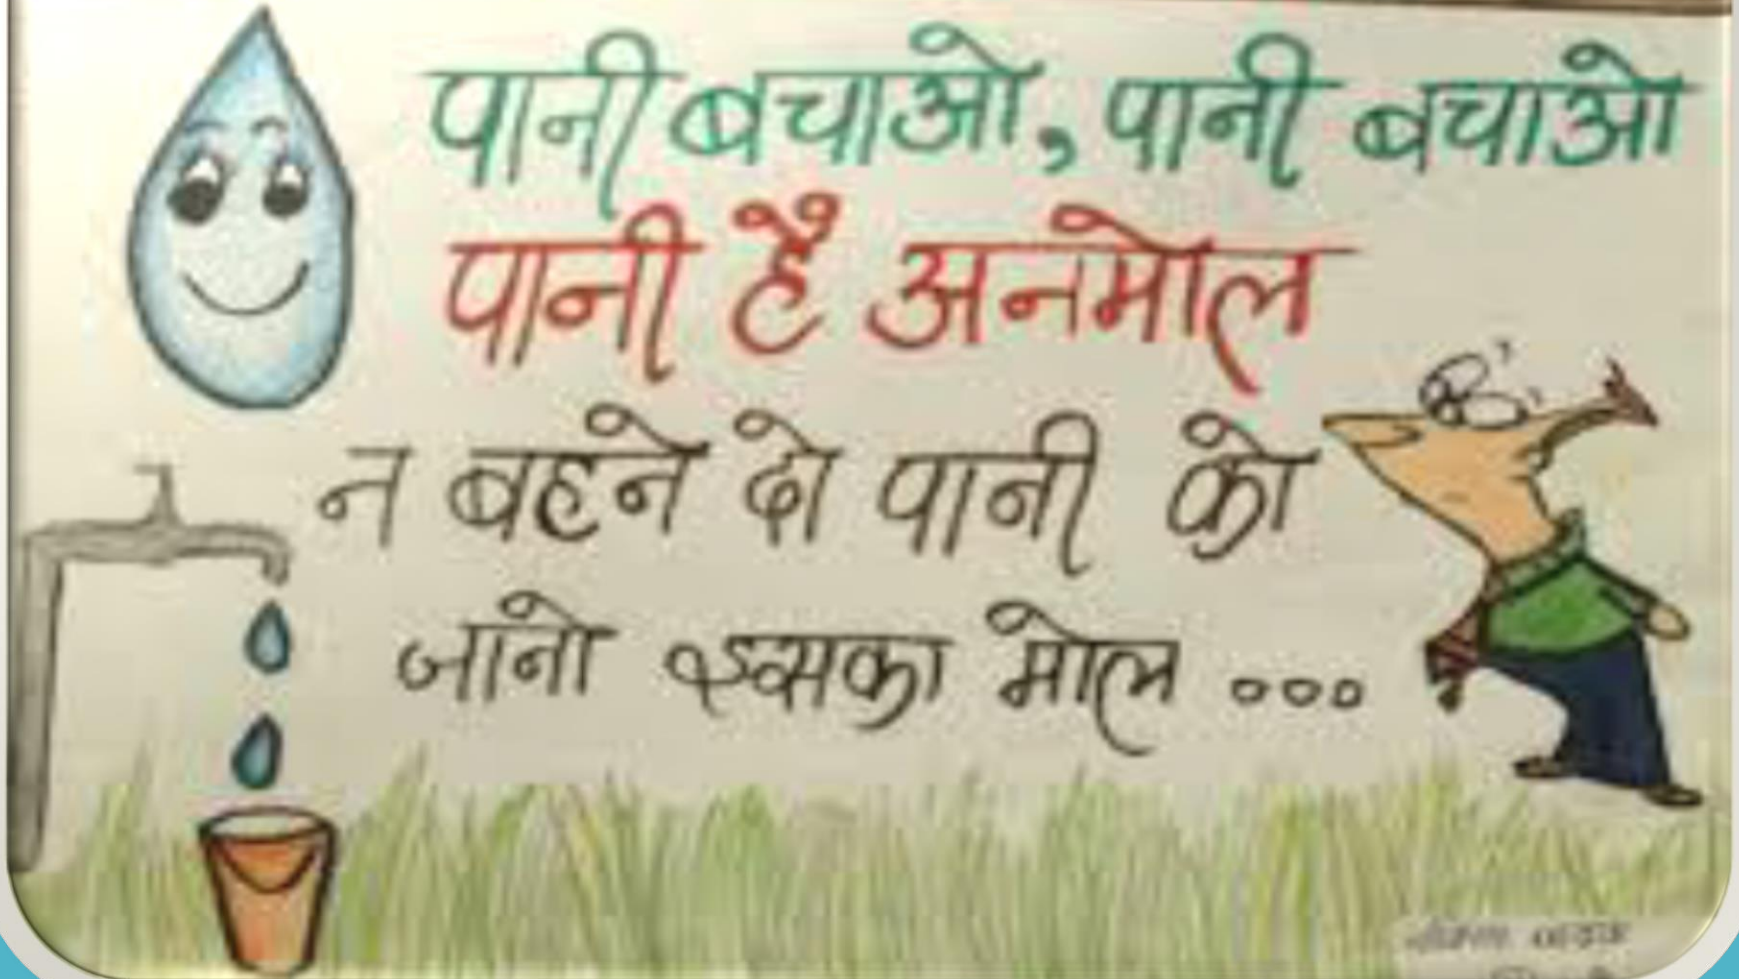 पानी बचाओ, पानी बचाओ
पानी है अनमोल
न बहने दो पानी को
जानो इसका मोल ...